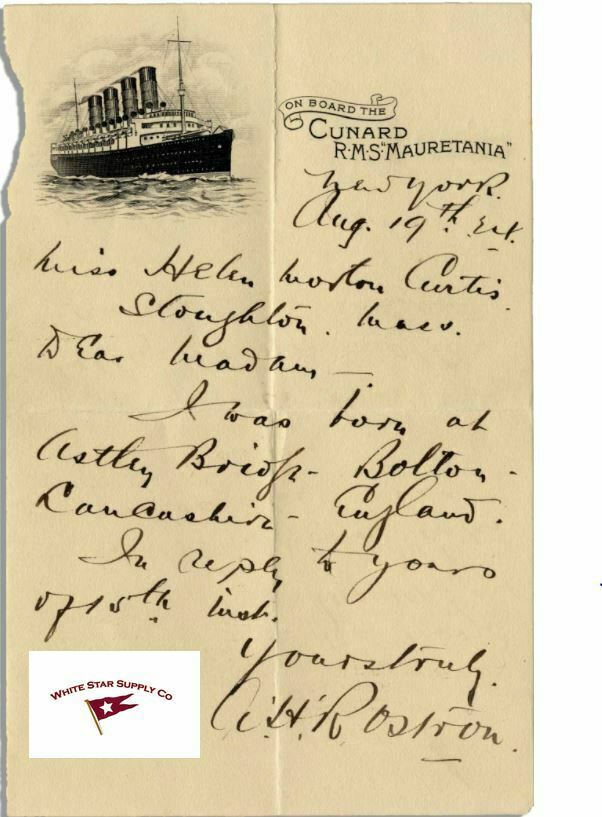 ON BOARD THE
CUNARD
R·M·S·"MAURETANIA"
New York.
Aug. 19th
Miss Helen Morton Curtis.
Stoughton. Mass.
Dear Madam —
I was born at
Astley Bridge - Bolton -
Lancashire - England.
In reply to yours
of 15th inst.
Yours truly.
A.H. Rostron.
WHITE STAR SUPPLY CO